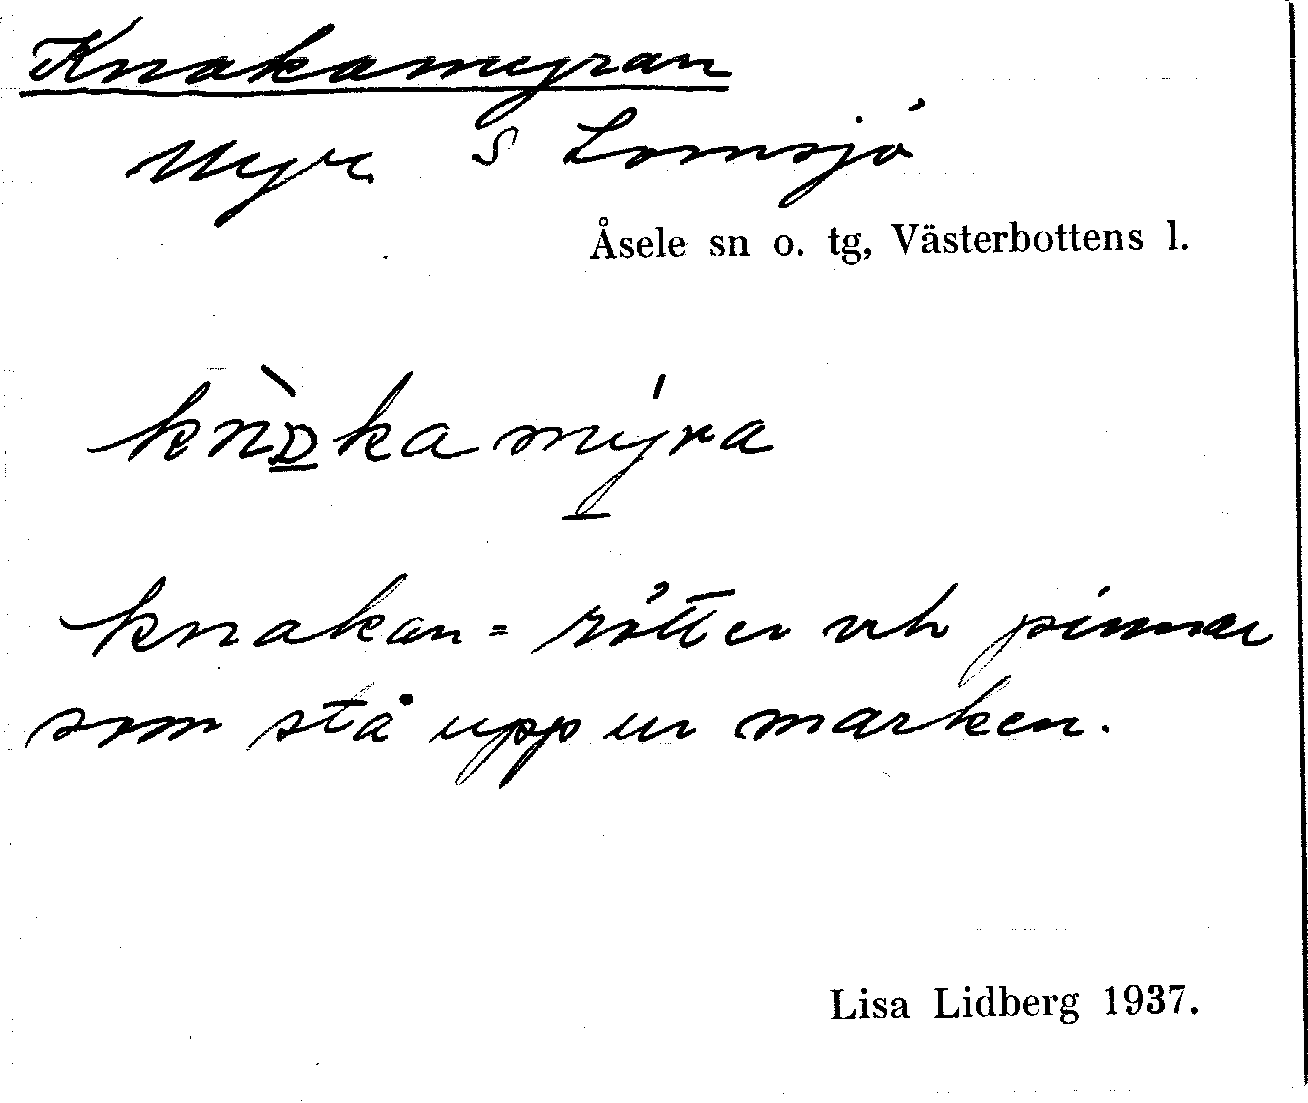 Knakamyran
Myr S Lomsjö
Åsele sn o. tg, Västerbottens l.
myra
knakan = rötter och pinnar
som stå upp ur marken.
Lisa Lidberg 1937.